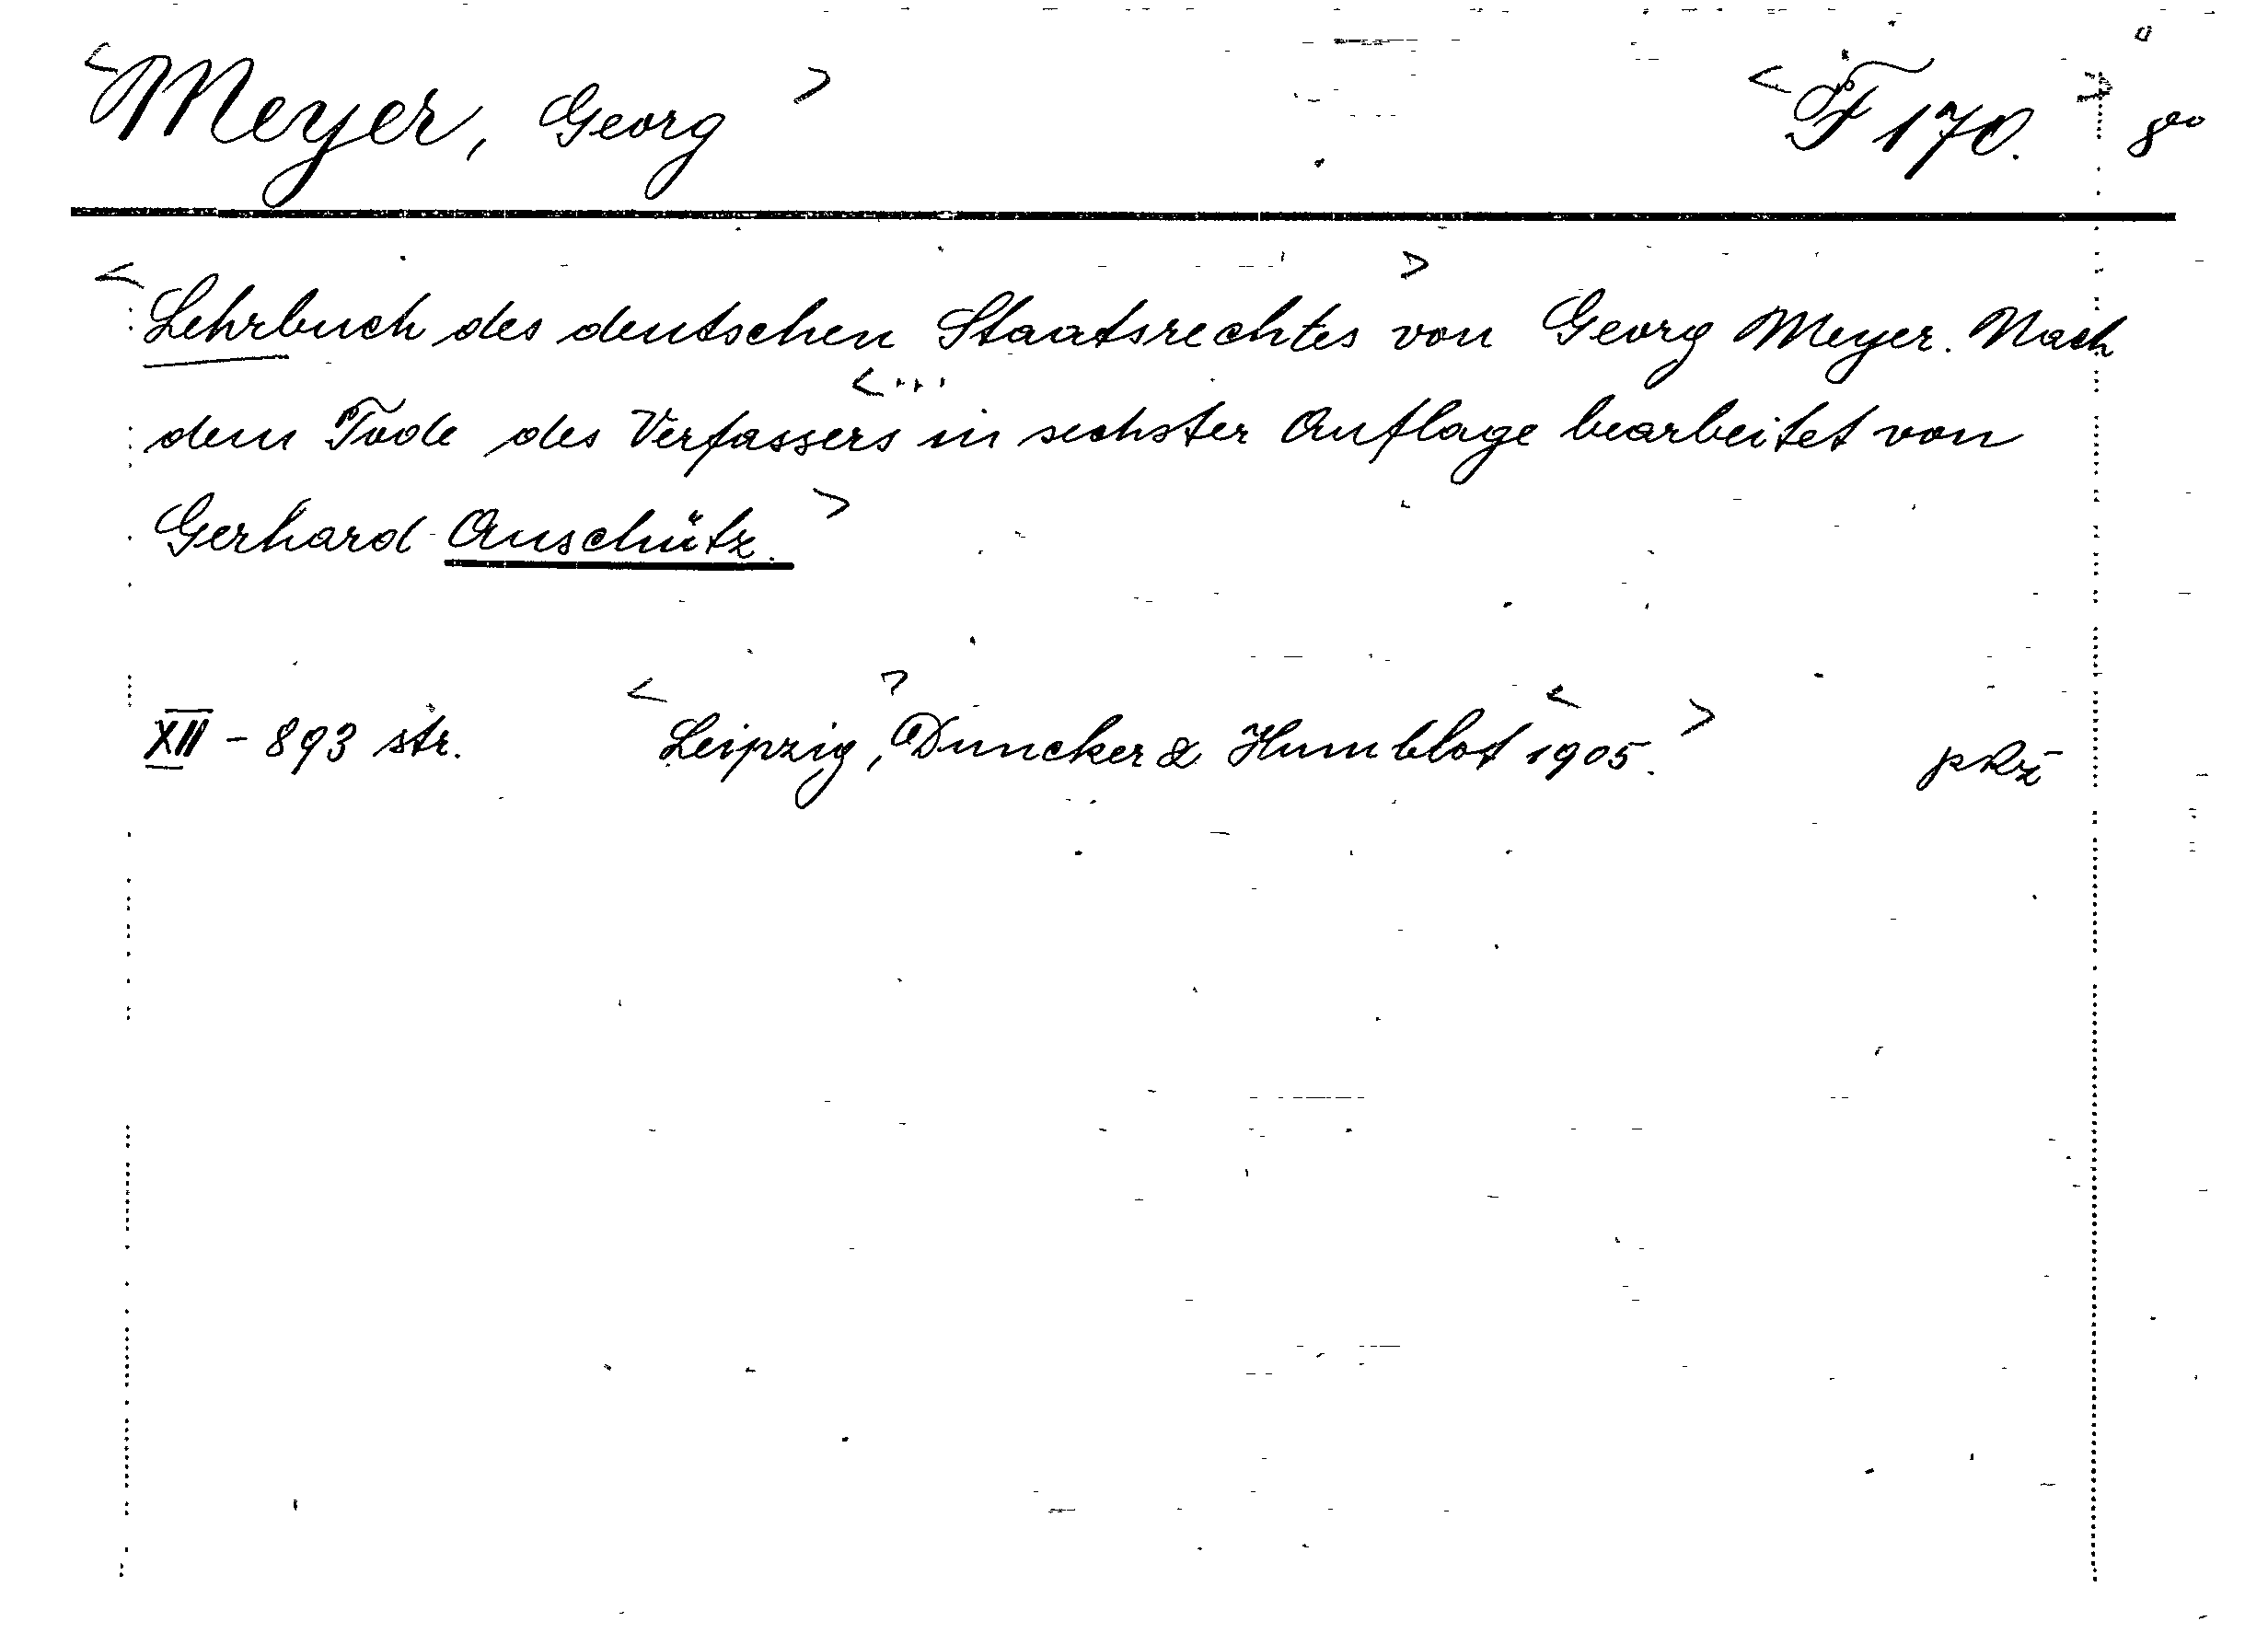 <Meyer, Georg> <F 170.> 8⁰
<Lehrbuch des deutschen Staatsrechtes> von Georg Meyer. Nach
dem Tode des Verfassers <... in sechster Auflage bearbeitet von
Gerhard Anschütz.>
XII - 893 str. <Leipzig, Duncker & Humblot <1905.>